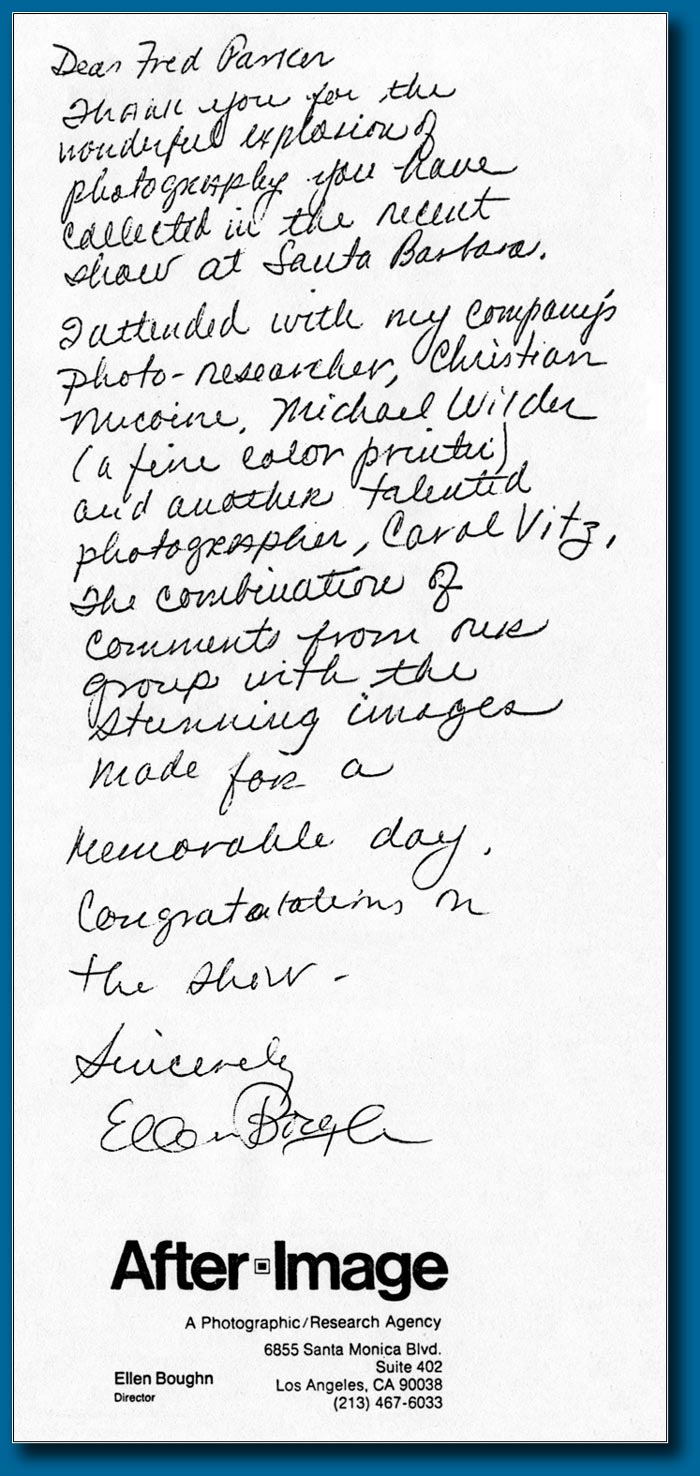 Dear Fred Parker
Thank you for the
wonderful explosion of
photography you have
collected in the recent
show at Santa Barbara.
I attended with my company's
photo-researcher, Christian
Michael Wilder
(a fine color printer)
and another talented
photographer, Carol Vitz,
The combination of
comments from our
group with the
stunning images
made for a
memorable day.
Congratulations on
the show -
Sincerely
Ellen Boughn
After Image
A Photographic/Research Agency
6855 Santa Monica Blvd.
Suite 402
Los Angeles, CA 90038
(213) 467-6033
Ellen Boughn
Director